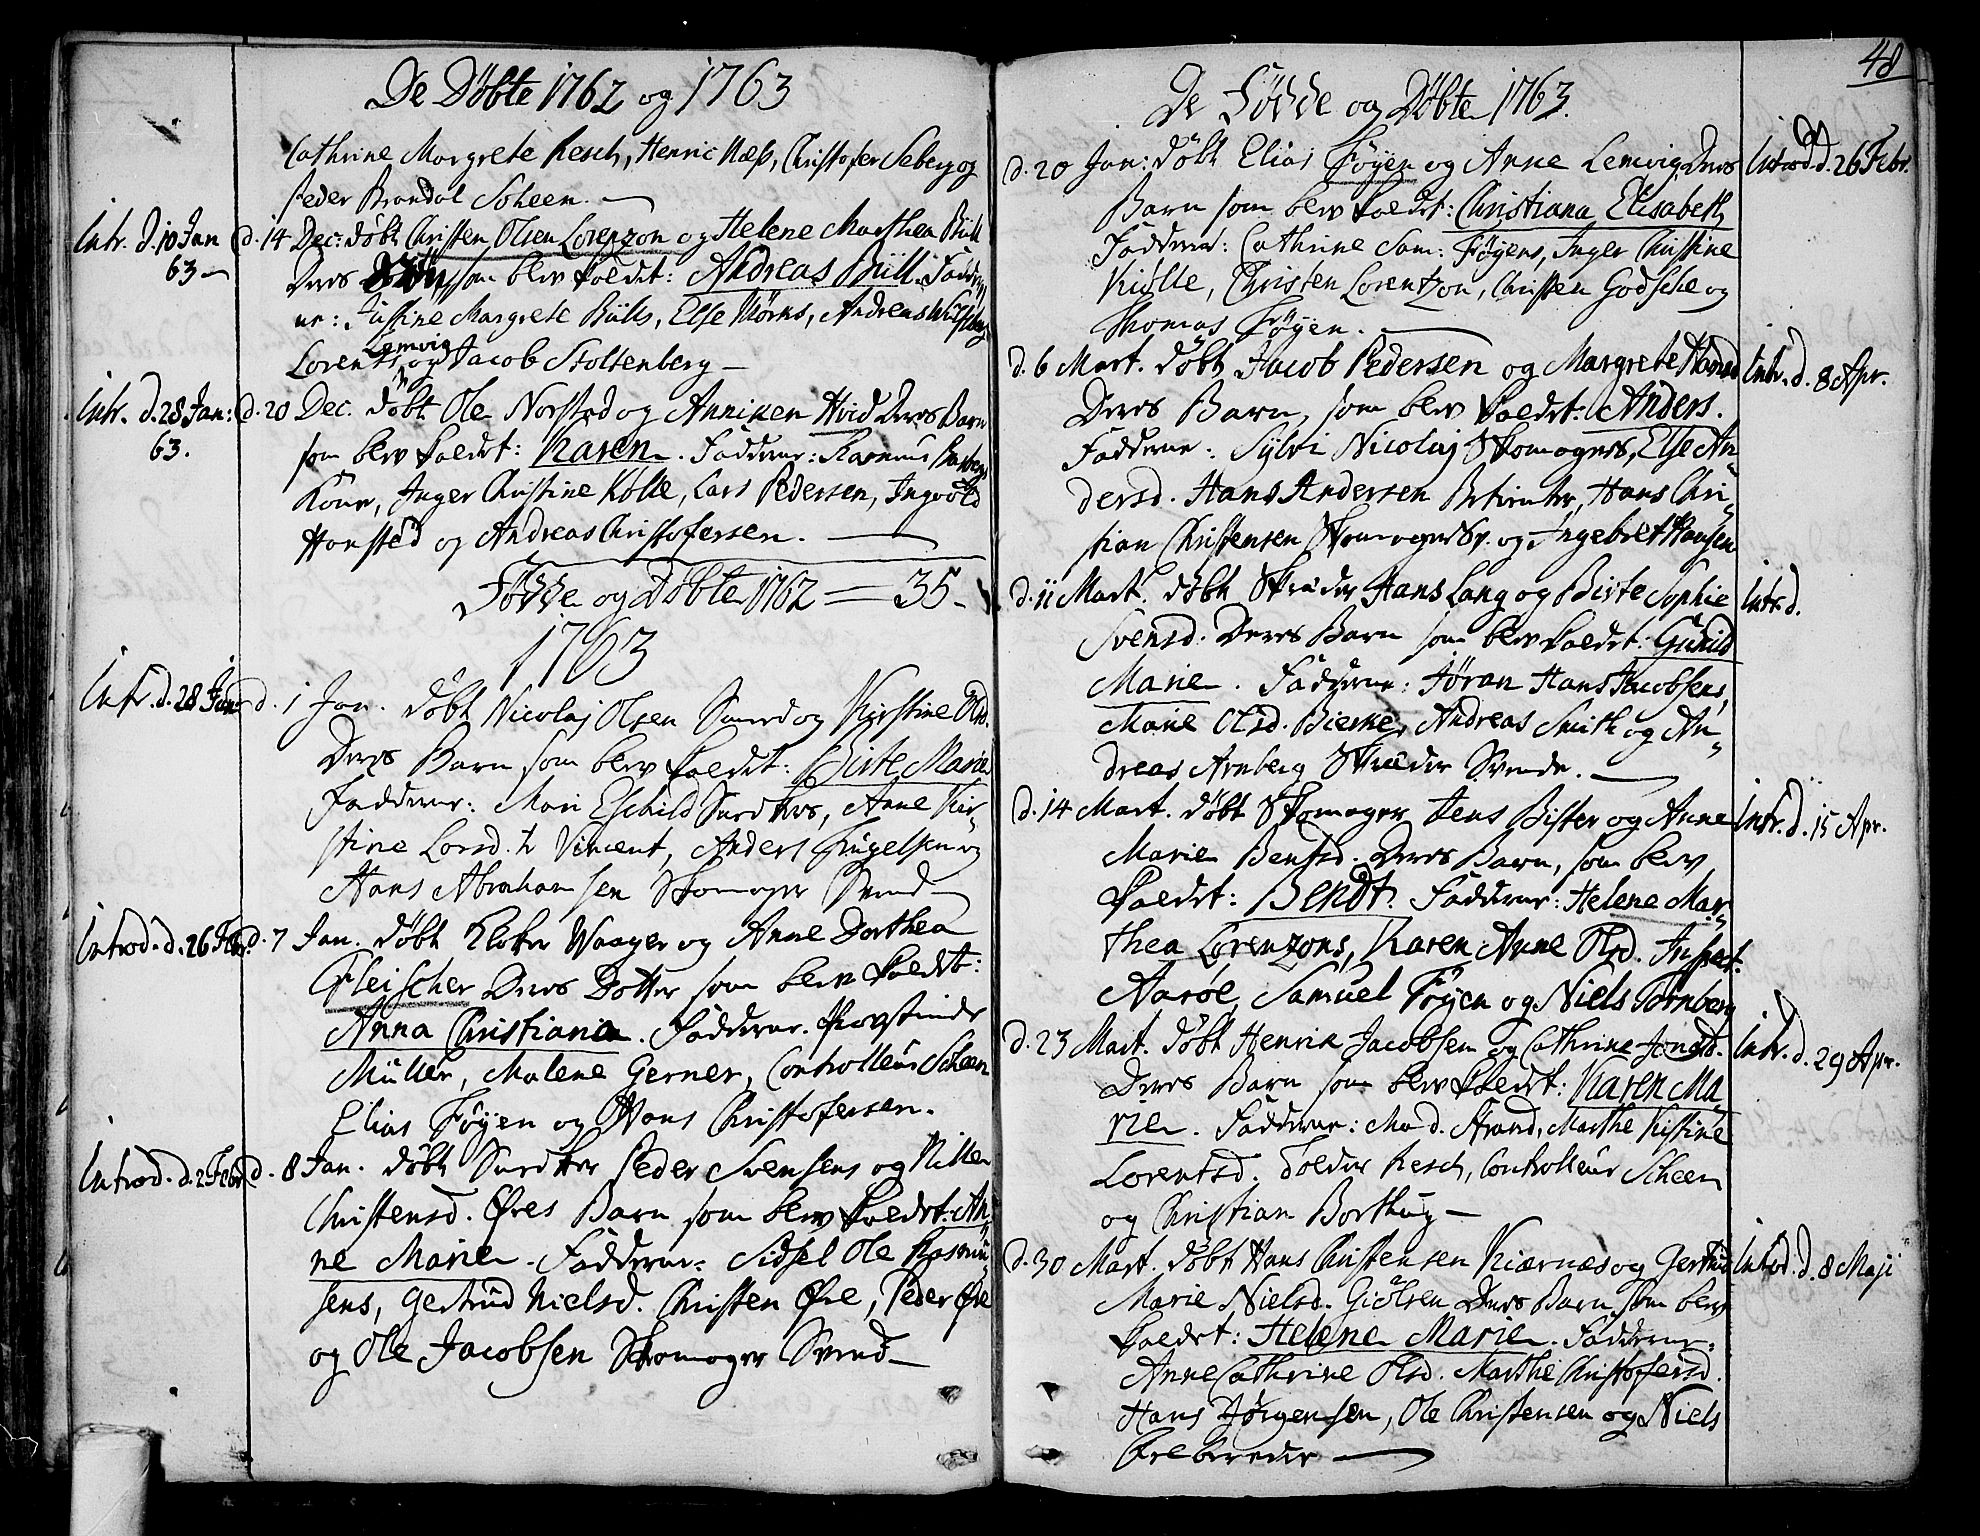 De Döbte 1762 og 1763
Cathrine Margrete Resch, Henric Næss, Christofer Seberg og
Peder Brondal Scheen.
Intr. d. 10 Jan 63
d. 14 Dec: döbt Christen Olsen Lorenzon og Helene Marthea Büll
Deres som blev kaldet: Andreas Büll. Fadde
re: Justine Margrete Bülls, Else Mörks, Andreas
Lorents Lemvig og Jacob Stoltenberg
Intr. d. 28 Jan: 63.
d. 20 Dec. döbt Ole Norsted og Anniken Hvid Deres Barn
som blev kaldet: Karen. Faddere: Rasmus
Kone, Inger Christine Kölle, Lars Pedersen, Ingvold
Honsted og Andreas Christofersen.
Födde og Döbte 1762 = 35
1763
Intr. d. 28 Jan
d. 1 Jan. döbt Nicolaj Olsen Smed og Kirstine Olsd.
Deres Barn som blev kaldet: Birte Marie
Faddere: Mari Eschild Snedkers, Anne Kir„
stine Larsd. Vincent, Anders Engelsen og
Hans Abrahamsen Skomager Svend
Introd. d. 26 Febr.
d. 7 Jan. döbt Kloker Waager og Anne Dorthea
Fleischer Deres Dotter som blev kaldet:
Anna Christiania. Faddere.
Müller, Malene Gerner, Controlleur Scheen
Elias Föyen og Hans Christofersen.
Introd. d. 2 Febr
d. 8 Jan. döbt Snedker Peder Svensens og Kitten
Christensd. Öres Barn som blev kaldet: An„
ne Marie. Faddere: Sidsel Ole Rasmu„
sens, Gertrud Nielsd. Christen Öre, Peder Öre
og Ole Jacobsen Skomager Svend
48
De Födde og Döbte 1763.
d. 20 Jan: döbt Elias Föyen og Anne Lemvig Deres
Introd. d. 26 Febr.
Barn som blev kaldet: Christiana Elisabeth
Faddere: Cathrine Sam: Föyens, Inger Christine
Kiölle, Christen Lorentzon, Christen Godsche og
Thomas Föyen.
d. 6 Mart. döbt Jacob Pedersen og Margrete Hansd
Intr. d. 8 Apr.
Deres Barn, som blev kaldet: Anders.
Faddere: Sylvi Nicolaj Skomagers, Else An„
dersd. Hans Andersen Betienter, Hans Chri„
stian Christensen Skomager Sv. og Ingebret Hansen
d. 11 Mart. döbt Skræder Hans Lang og Birte Sophie
Intr. d.
Svensd. Deres Barn som blev kaldet: Gunild
Marie. Faddere: Jöran Hans Jacobsens,
Marie Olsd. Bierke, Andreas Smith og An„
dreas Arnberg Skræder Svende.
d. 14 Mart. döbt Skomager Jens Bister og Anne
Intr. d. 15 Apr.
Marie Bentsd. Deres Barn, som blev
kaldet: Bendt. Faddere: Helene Mar„
thea Lorenzons, Karen Anne Olsd. Inspect.
Aaröe, Samuel Föyen og Niels Tornberg
d. 23 Mart. döbt Henrik Jacobsen og Cathrine Jonsd.
Intr. d. 29 Apr.
Deres Barn som blev kaldet: Karen Ma„
rie. Faddere: Mad. Strand, Marthe Kistine
Lorentsd. Tolder Resch, Controlleur Scheen
og Christian Borthug
d. 30 Mart. döbt Hans Christensen Kiærnæs og Gertrud
Introd. d. 8 Maji
Marie Nielsd. Giölsen Deres Barn som blev
kaldet: Helene Marie. Faddere.
Anne Cathrine Olsd. Marthe Christofersd.
Hans Jörgensen, Ole Christensen og Niels